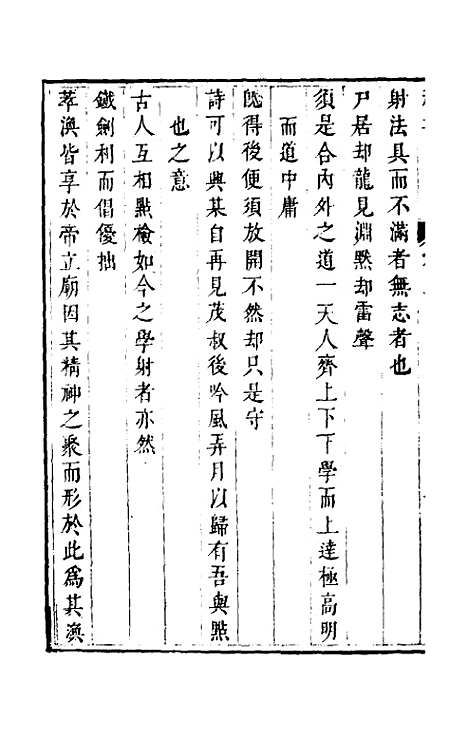 射法具而不滿者無志者也
尸居却龍見淵默却雷聲
須是合內外之道一天人齊上下下學而上達極高明
而道中庸
旣得後便須放開不然却只是守
詩可以興某自再見茂叔後吟風弄月以歸有吾與㸃
也之意
古人互相㸃檢如今之學射者亦然
鐵劍利而倡優拙
萃渙皆享於帝立廟因其精神之聚而形於此爲其渙